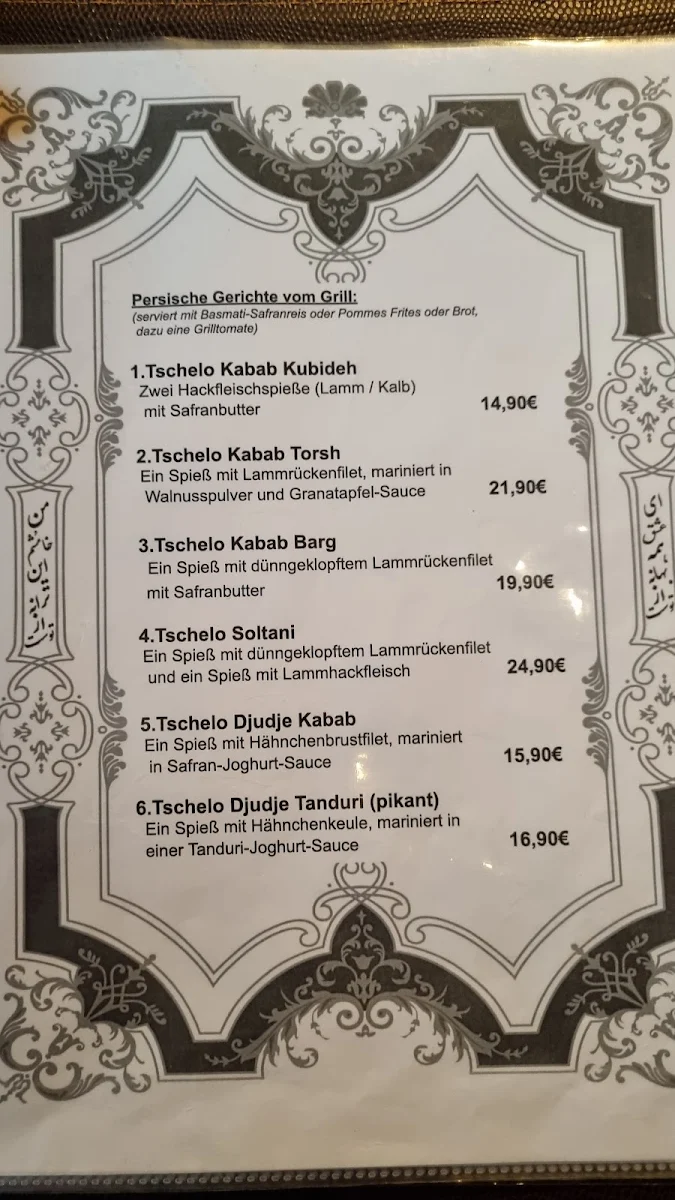 Persische Gerichte vom Grill:
(serviert mit Basmati-Safranreis oder Pommes Frites oder Brot,
dazu eine Grilltomate)
1.Tschelo Kabab Kubideh
Zwei Hackfleischspieße (Lamm / Kalb)
mit Safranbutter
14,90€
2.Tschelo Kabab Torsh
Ein Spieß mit Lammrückenfilet, mariniert in
Walnusspulver und Granatapfel-Sauce
21,90€
3.Tschelo Kabab Barg
Ein Spieß mit dünngeklopftem Lammrückenfilet
mit Safranbutter
19,90€
4.Tschelo Soltani
Ein Spieß mit dünngeklopftem Lammrückenfilet
und ein Spieß mit Lammhackfleisch
24,90€
5.Tschelo Djudje Kabab
Ein Spieß mit Hähnchenbrustfilet, mariniert
in Safran-Joghurt-Sauce
15,90€
6.Tschelo Djudje Tanduri (pikant)
Ein Spieß mit Hähnchenkeule, mariniert in
einer Tanduri-Joghurt-Sauce
16,90€